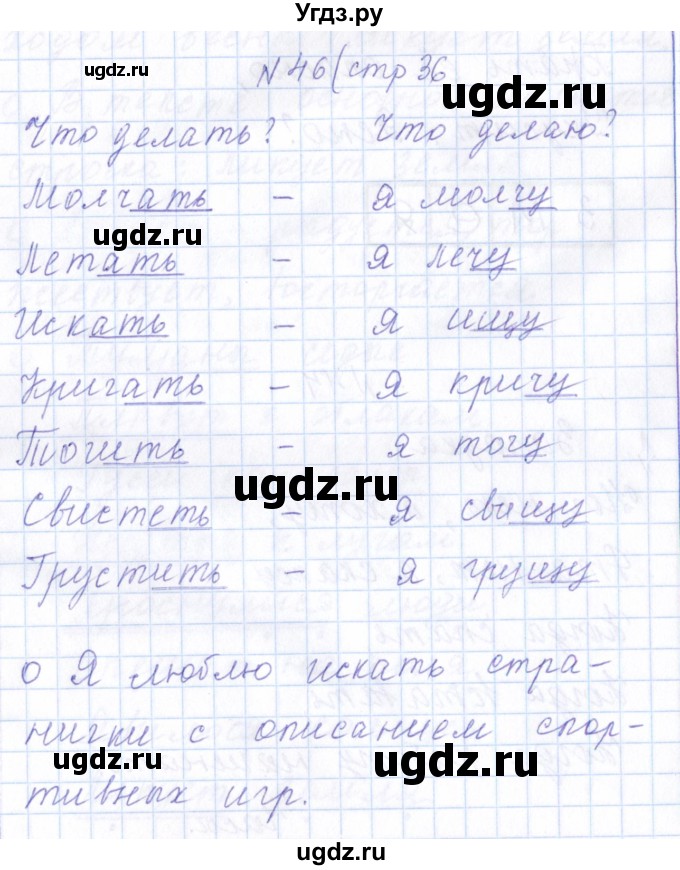 Угдз.ру
ugdz.ru
№ 46 (стр 36
ugdz.ru
Что делать? Что делаю?
Молчать – я молчу
ugdz.ru
Летать – я лечу
Искать – я ищу
Кричать – я кричу
Точить – я точу
ugdz.ru
Свистеть – я свищу
Грустить – я грущу
о Я люблю искать стра-
нички с описанием спор-
ugdz.ru
ugdz.ru
тивных игр.
ugdz.ru